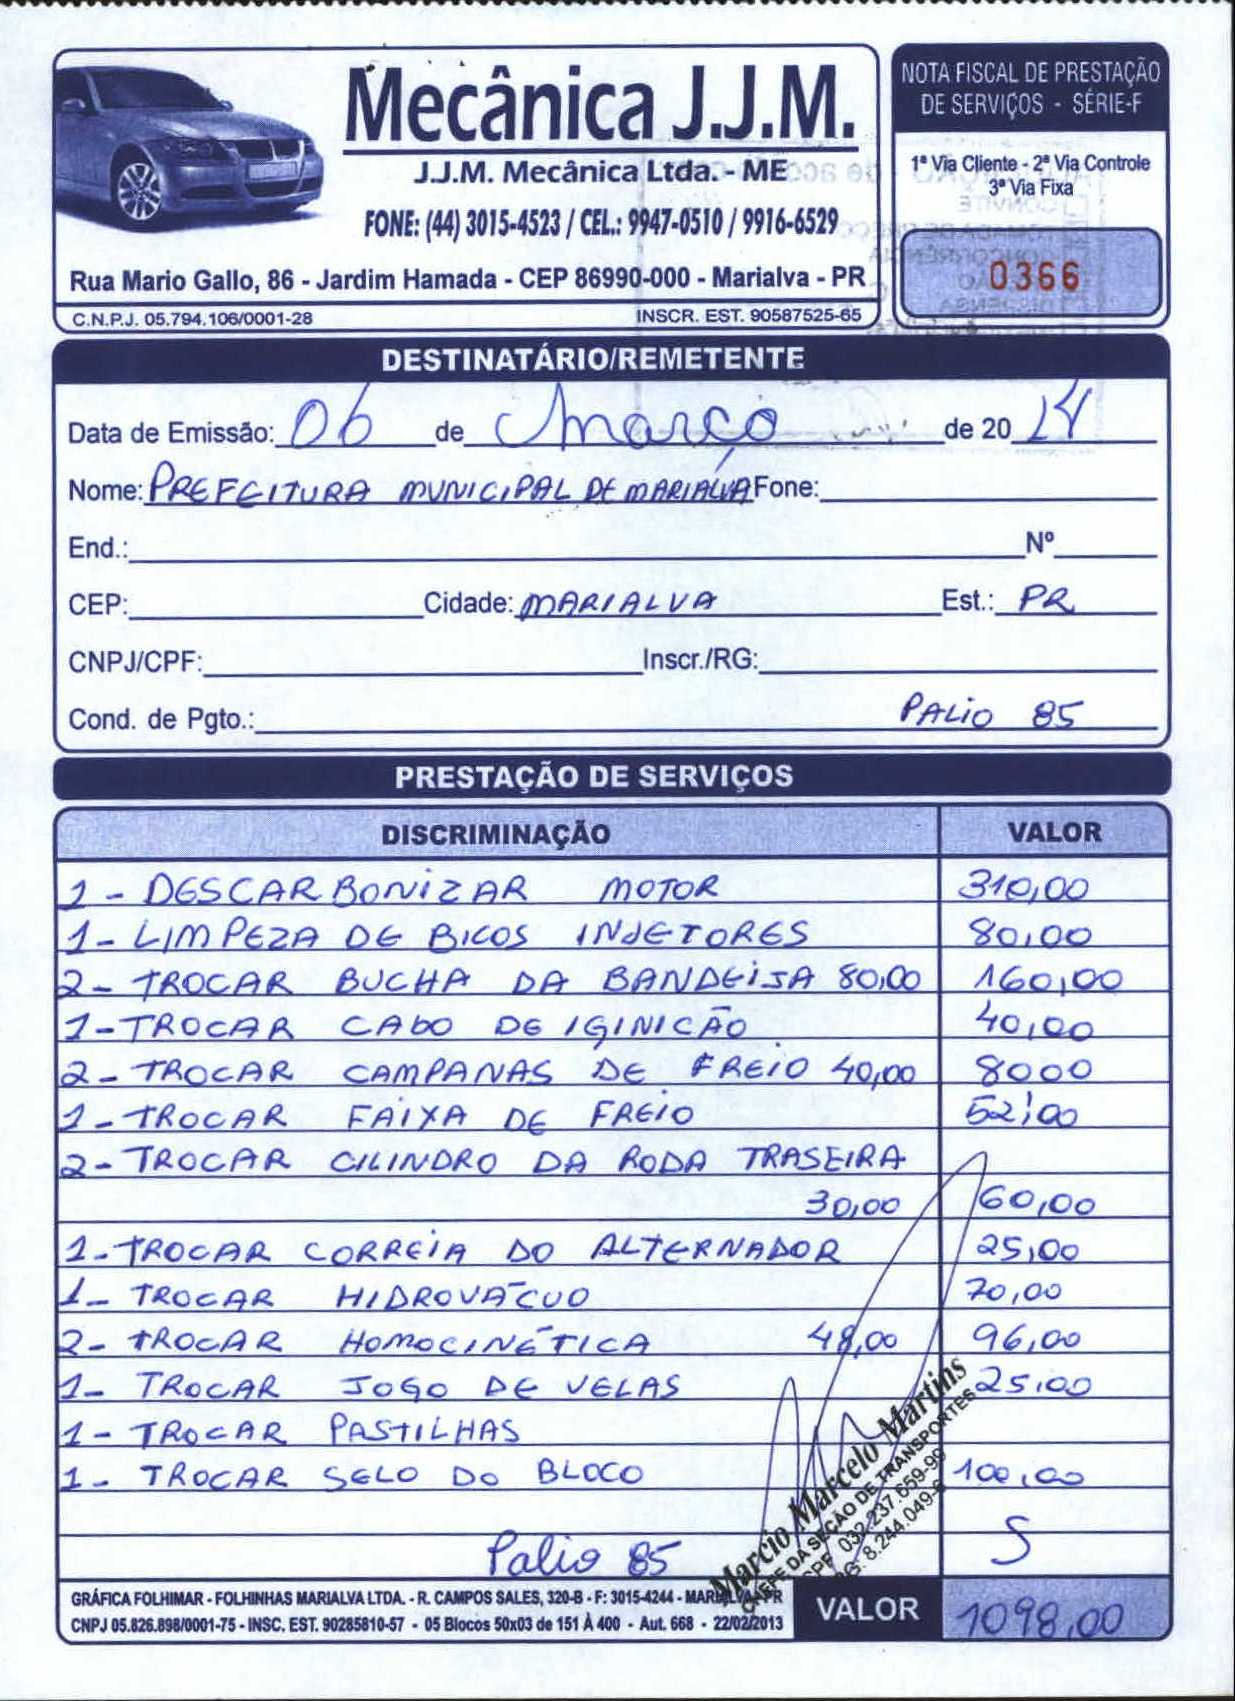 Mecânica J.J.M.
J.J.M. Mecânica Ltda. - ME
FONE: (44) 3015-4523 / CEL.: 9947-0510 / 9916-6529
Rua Mario Gallo, 86 - Jardim Hamada - CEP 86990-000 - Marialva - PR
C.N.P.J. 05.794.106/0001-28 INSCR. EST. 90587525-65
NOTA FISCAL DE PRESTAÇÃO
DE SERVIÇOS - SÉRIE-F
1ª Via Cliente - 2ª Via Controle
3ª Via Fixa
0366
DESTINATÁRIO/REMETENTE
Data de Emissão: 06 de Março de 2014
Nome: PREFEITURA MUNICIPAL DE MARIALVA Fone:
End.: Nº
CEP: Cidade: MARIALVA Est.: PR
CNPJ/CPF: Inscr./RG:
Cond. de Pgto.: PALIO 85
PRESTAÇÃO DE SERVIÇOS
DISCRIMINAÇÃO VALOR
1 - DESCARBONIZAR MOTOR 310,00
1 - LIMPEZA DE BICOS INJETORES 80,00
2 - TROCAR BUCHA DA BANDEIJA 80,00 160,00
1 - TROCAR CABO DE IGINICÃO 40,00
2 - TROCAR CAMPANAS DE FREIO 40,00 8000
1 - TROCAR FAIXA DE FREIO 52,00
2 - TROCAR CILINDRO DA RODA TRASEIRA
30,00 60,00
1 - TROCAR CORREIA DO ALTERNADOR 25,00
1 - TROCAR HIDROVÁCUO 70,00
2 - TROCAR HOMOCINÉTICA 48,00 96,00
1 - TROCAR JOGO DE VELAS 25,00
1 - TROCAR PASTILHAS
1 - TROCAR SELO DO BLOCO 100,00
Palio 85
Marcio Marcelo Martins
CHEFE DA SEÇÃO DE TRANSPORTES
CPF 032.237.659-99
RG: 8.244.049-
GRÁFICA FOLHIMAR - FOLHINHAS MARIALVA LTDA. - R. CAMPOS SALES, 320-B - F: 3015-4244 - MARIALVA - PR
CNPJ 05.826.898/0001-75 - INSC. EST. 90285810-57 - 05 Blocos 50x03 de 151 À 400 - Aut. 668 - 22/02/2013
VALOR 1098,00